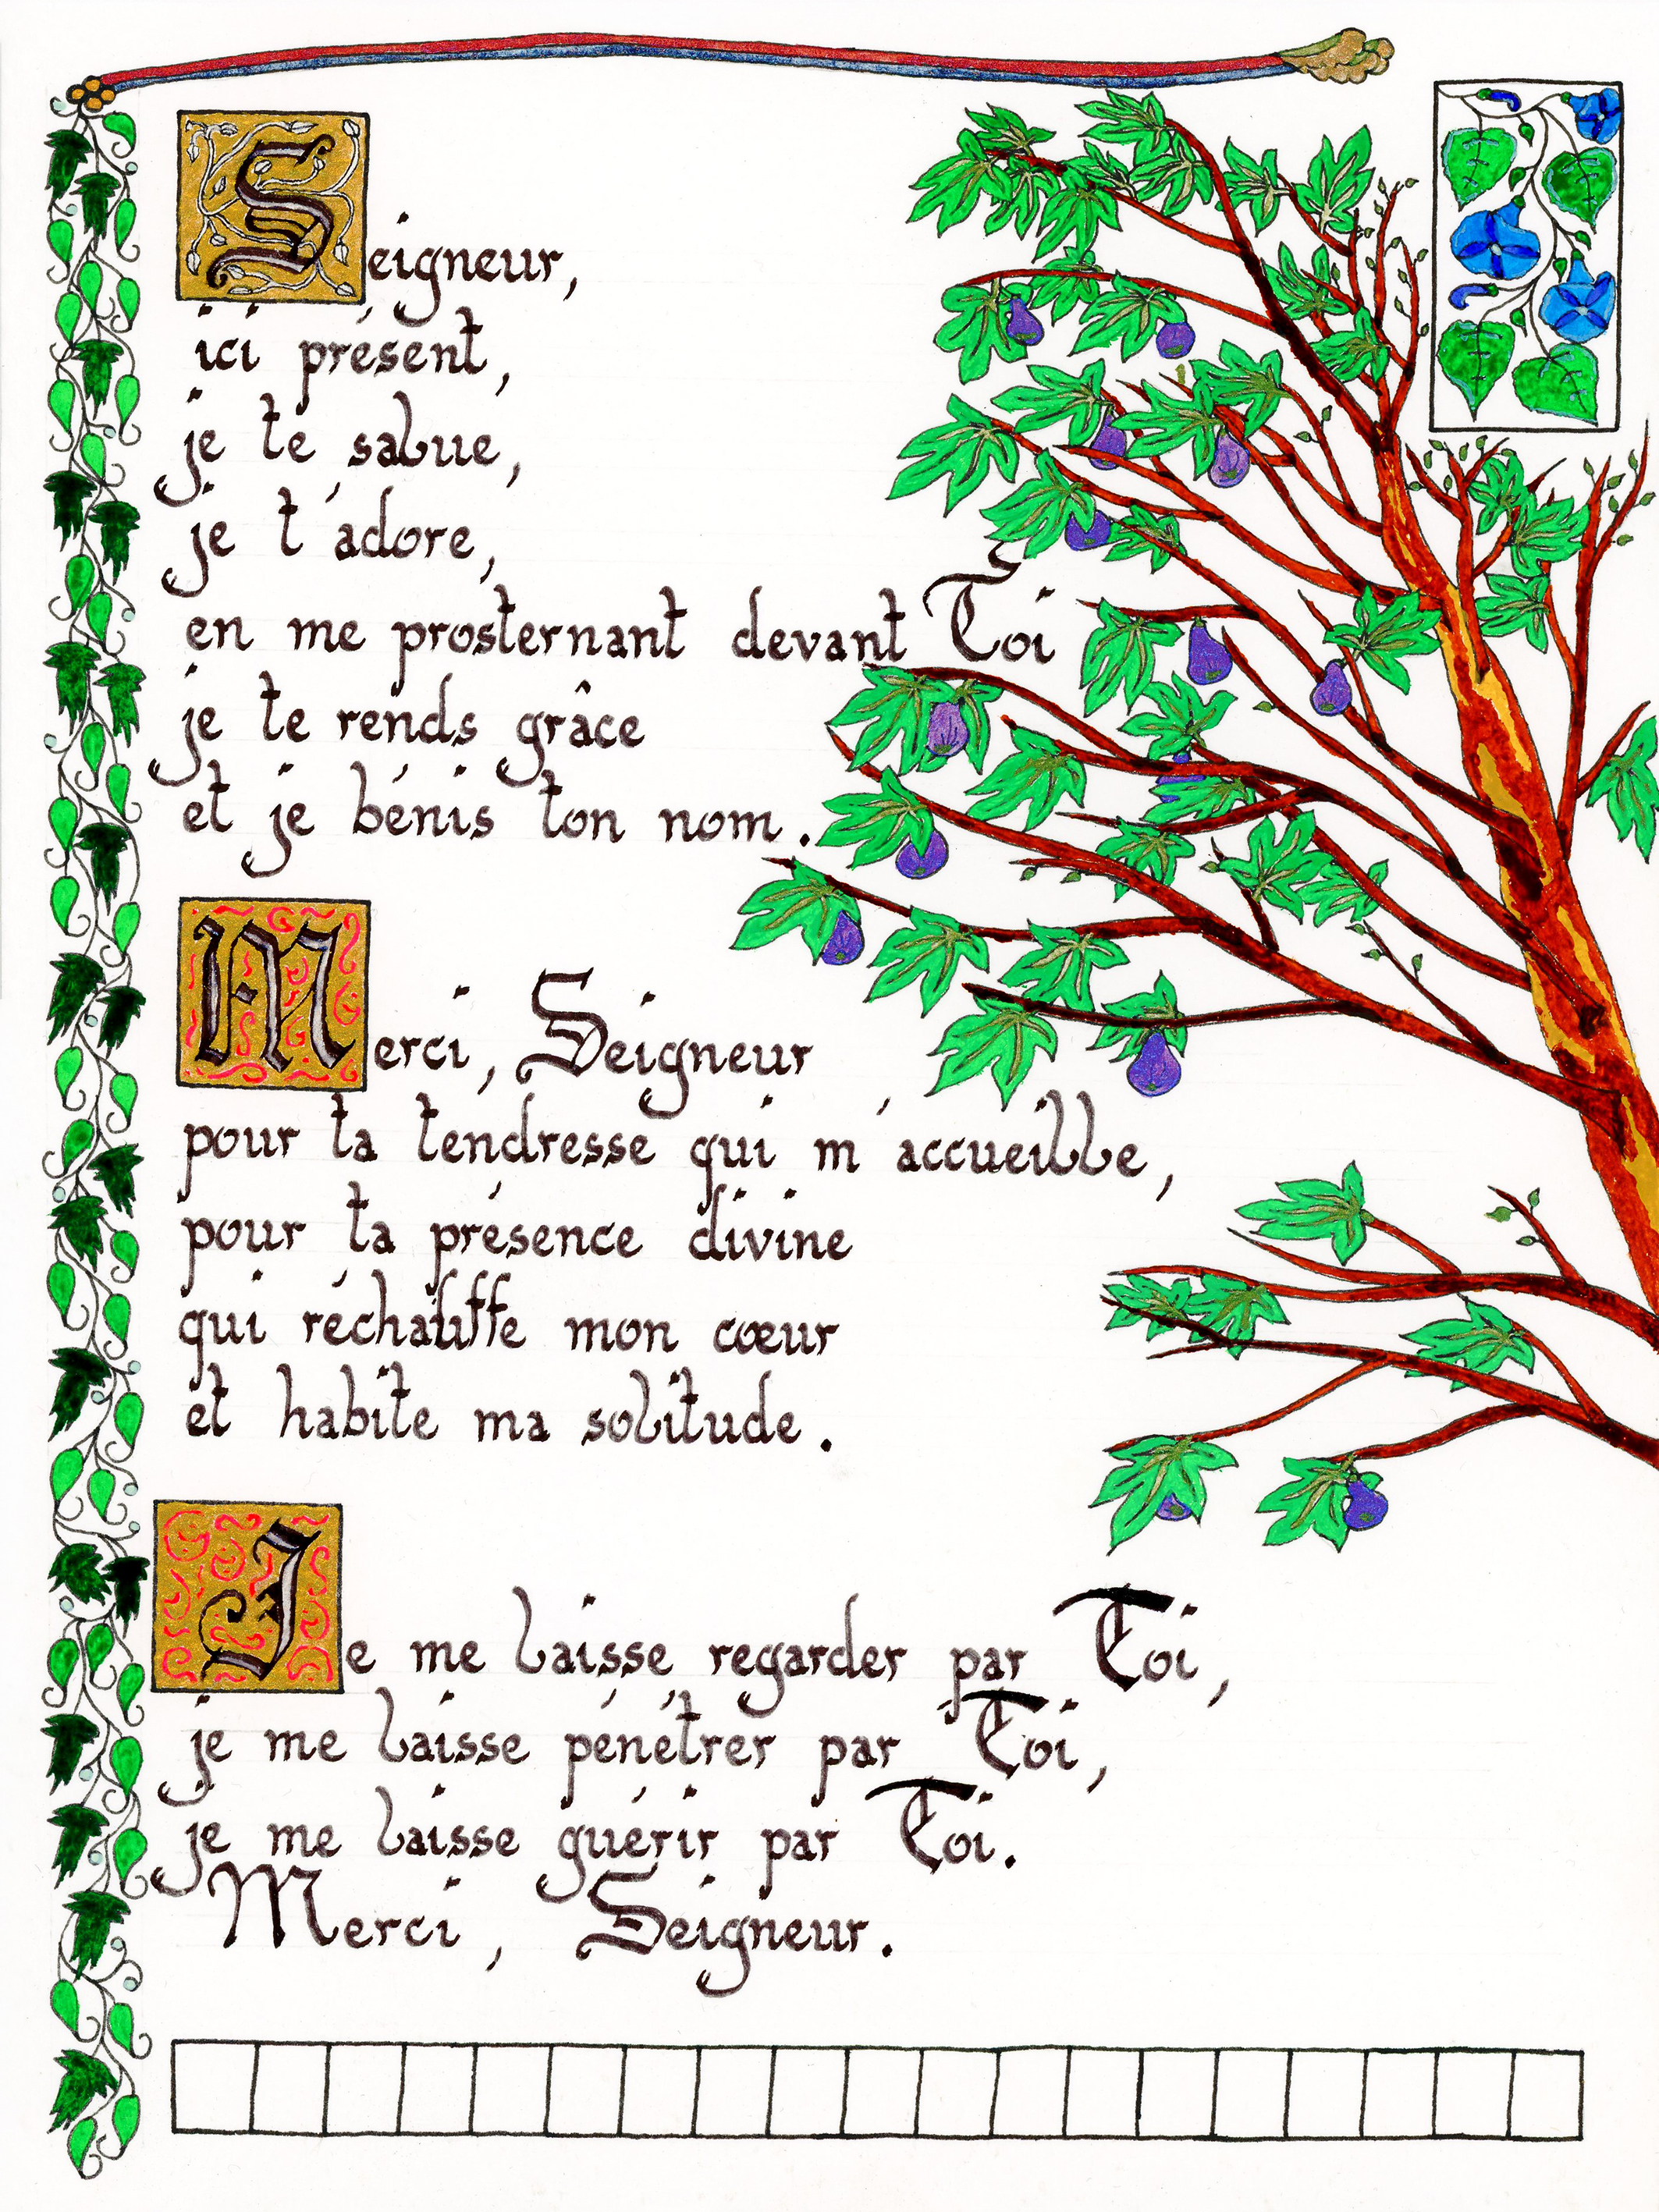 Seigneur,
ici présent,
je te salue,
je t'adore,
en me prosternant devant Toi
je te rends grâce
et je bénis ton nom.
Merci, Seigneur
pour ta tendresse qui m'accueille,
pour ta présence divine
qui réchauffe mon cœur
et habite ma solitude.
Je me laisse regarder par Toi,
je me laisse pénétrer par Toi,
je me laisse guérir par Toi.
Merci, Seigneur.